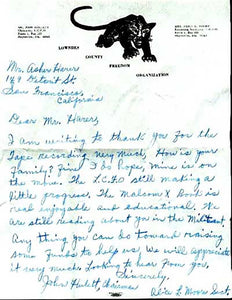 LOWNDES
COUNTY
FREEDOM
ORGANIZATION
Mr. Asher Harer
San Francisco,
California
Dear Mr. Harer,
I am writing to thank you for the
Tape recording very much, How is your
family? Fine I hope, Mine is on
the move. The LCFO still making a
little progress. The Malcom X Book is
very enjoyable and educational. We
are still reading about you in the Militant.
Any thing you can do toward raising
some funds to help us. We will appreciate
it very much. Looking to hear from you.
Sincerely,
John Hulett, Chairman
Alice L Moore Sect.